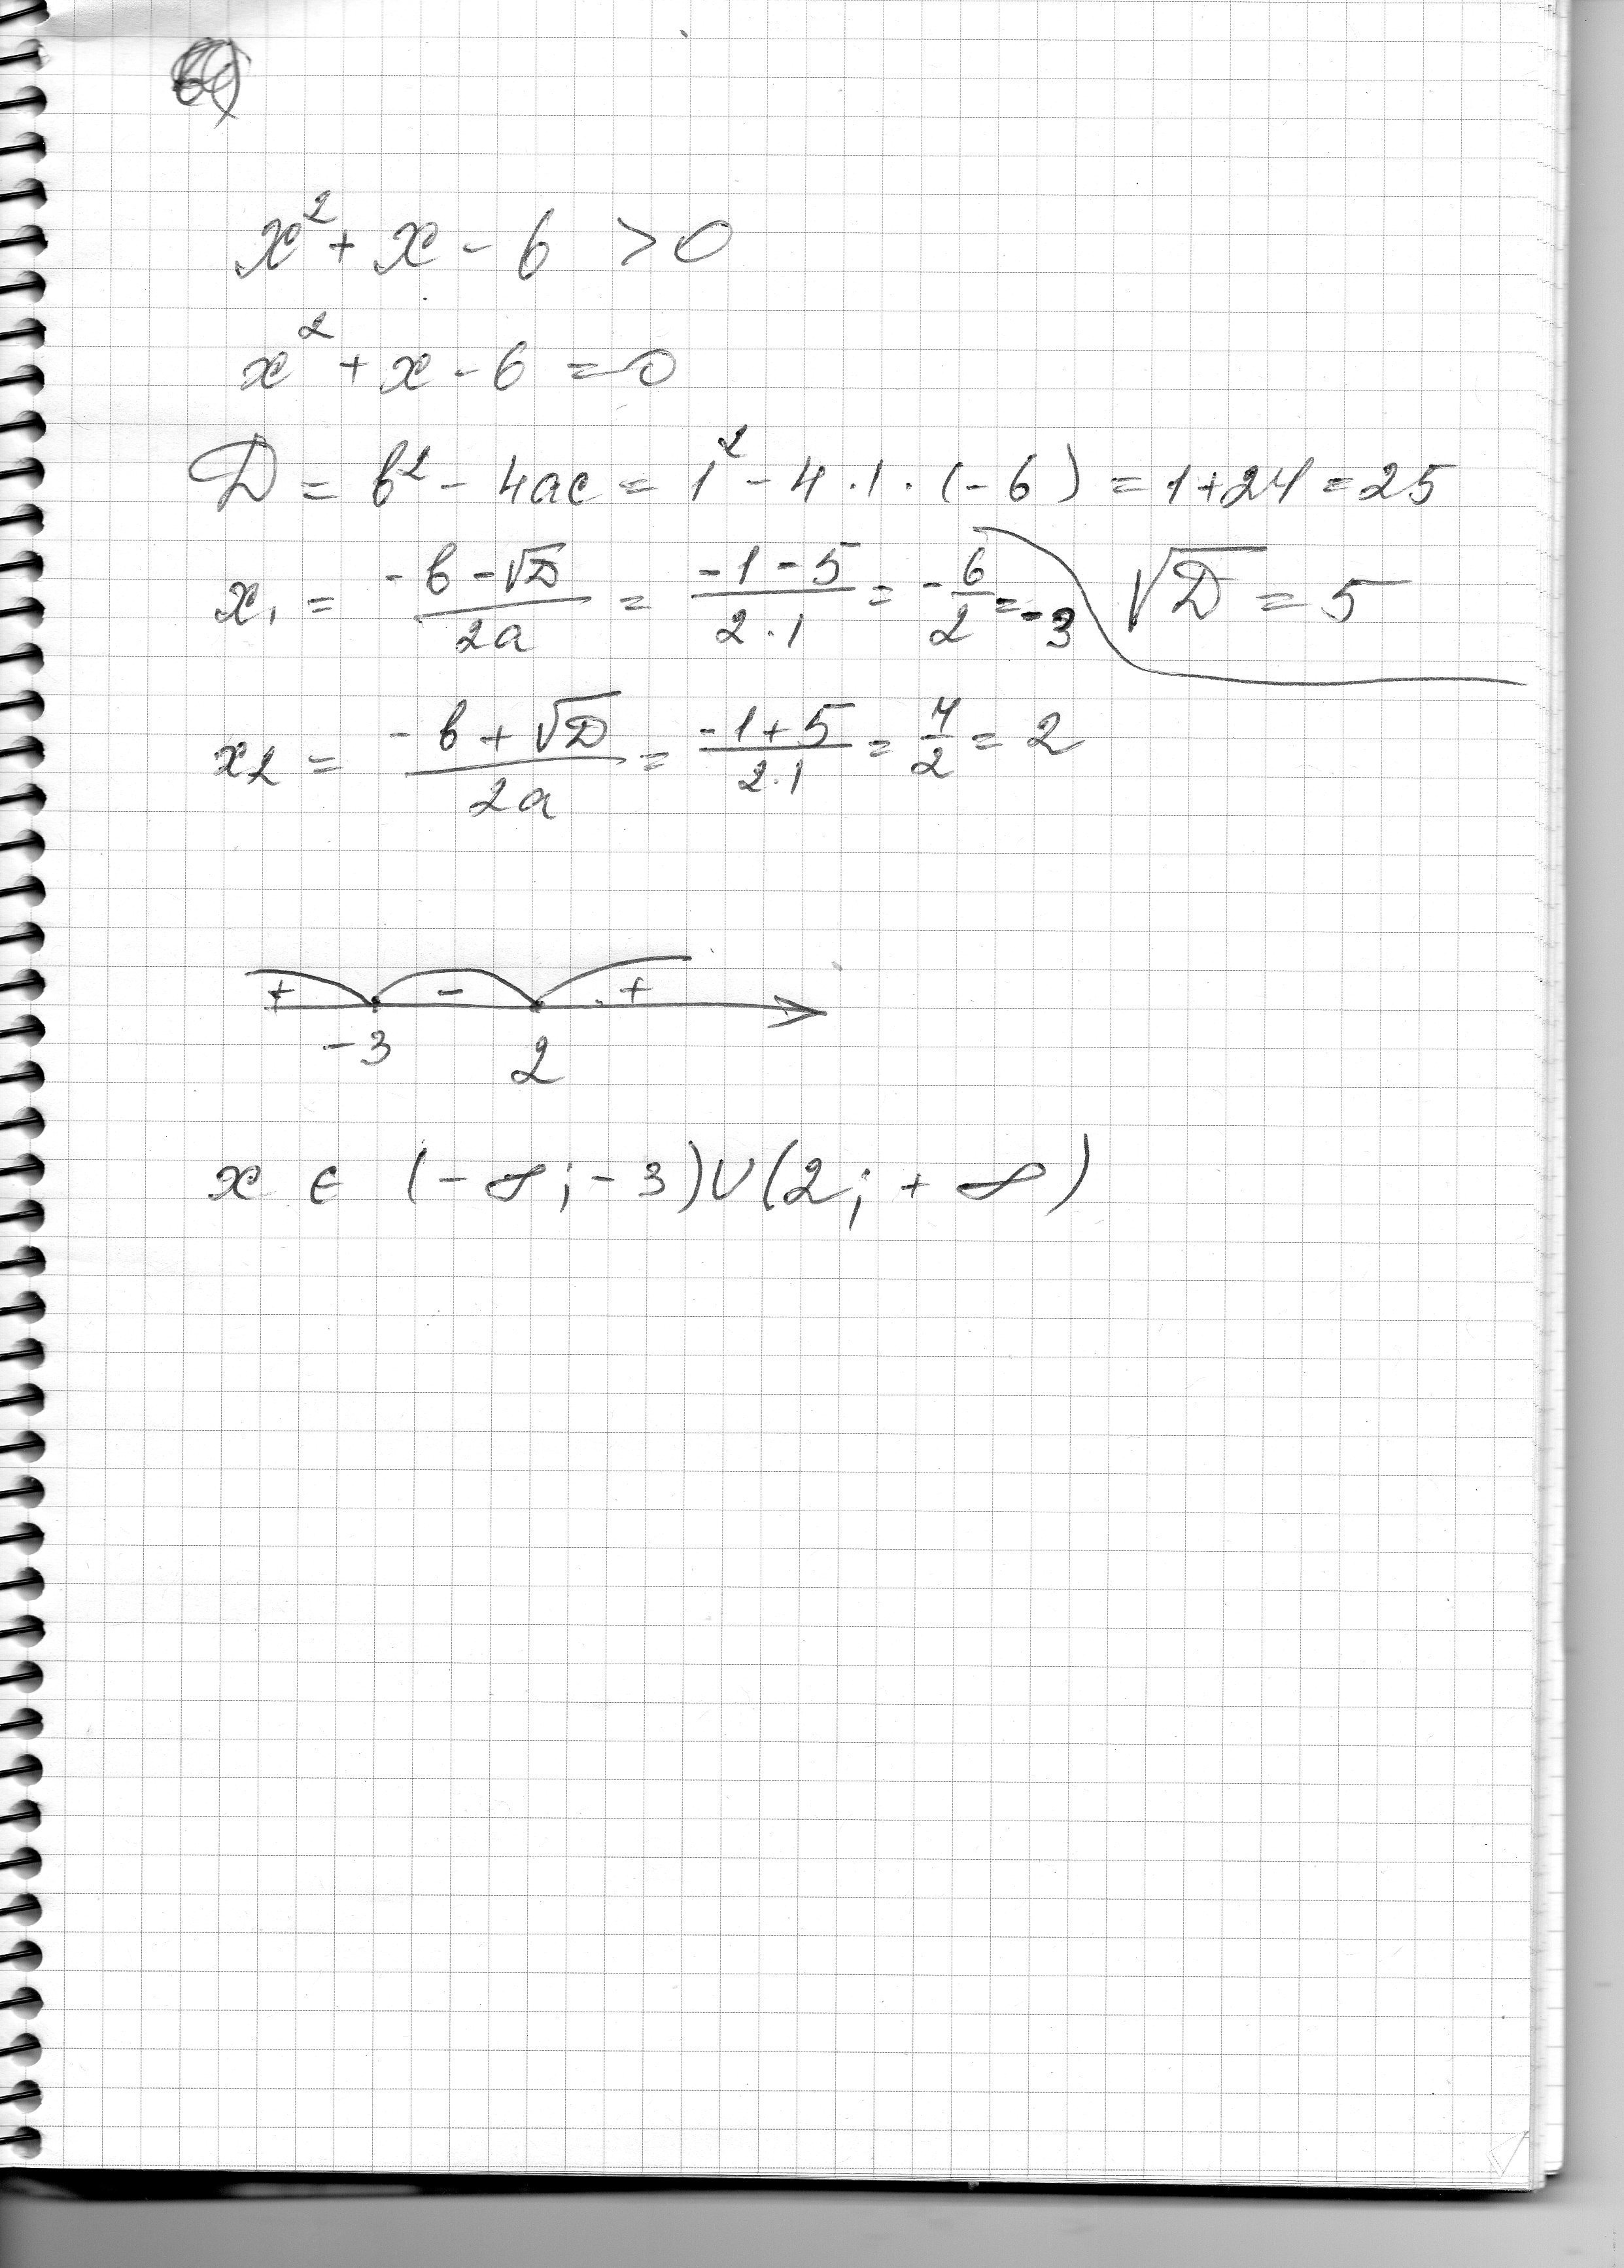 x² + x - 6 > 0
x² + x - 6 = 0
D = b² - 4ac = 1² - 4·1·(-6) = 1+24 = 25
x₁ = (-b - √D)/(2a) = (-1-5)/(2·1) = -6/2 = -3
√D = 5
x₂ = (-b + √D)/(2a) = (-1+5)/(2·1) = 4/2 = 2
+ - +
-3 2
x ∈ (-∞; -3)∪(2; +∞)